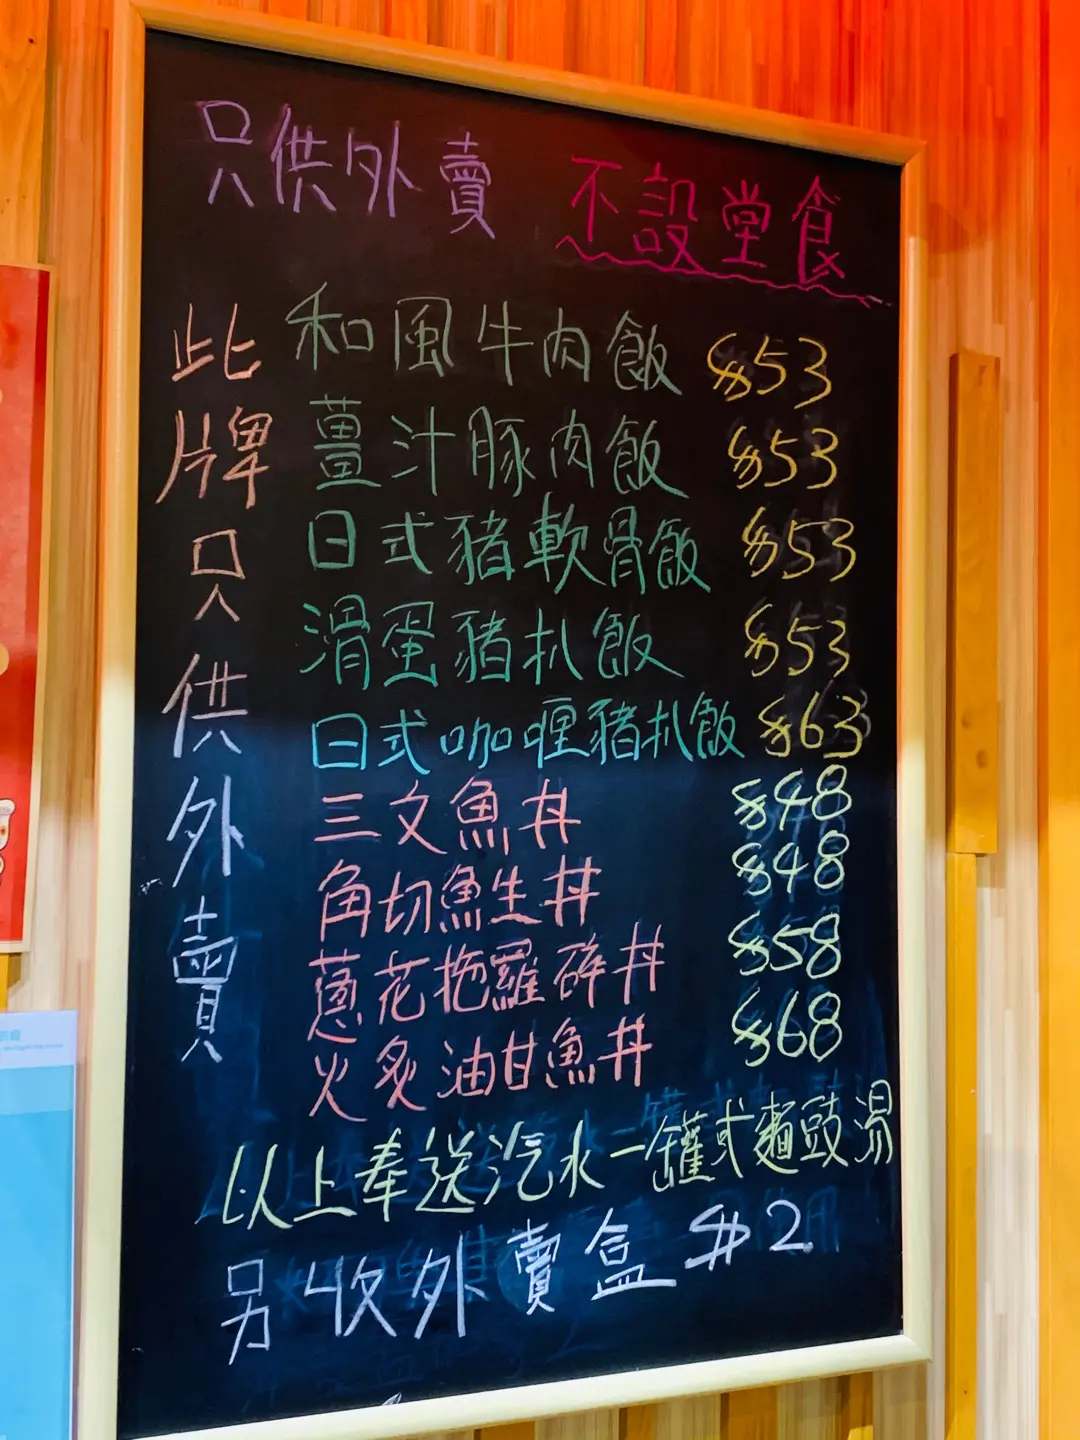 只供外賣 不設堂食
此牌只供外賣
和風牛肉飯 $53
薑汁豚肉飯 $53
日式豬軟骨飯 $53
滑蛋豬扒飯 $53
日式咖喱豬扒飯 $63
三文魚丼 $48
角切魚生丼 $48
蔥花拖羅碎丼 $58
火炙油甘魚丼 $68
以上奉送汽水一罐或麵豉湯
另收外賣盒 $2